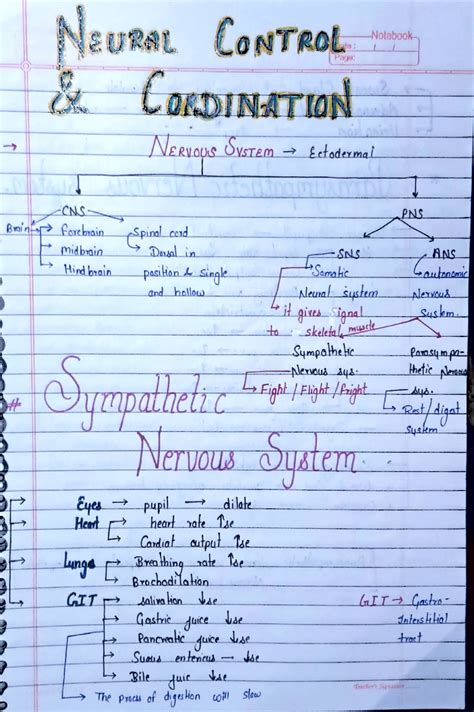 Notebook
Date:
Page:
NEURAL CONTROL
& CORDINATION
→ NERVOUS SYSTEM → Ectodermal
CNS
PNS
Brain → forebrain
→ midbrain
→ Hindbrain
Spinal cord
→ Dorsal in
position & single
and hollow
SNS
→ Somatic
Neural system
→ it gives signal
to skeletal muscle
ANS
→ autonomic
Nervous
System.
Sympathetic
Nervous sys.
→ Fight / Flight / fright
Parasympa-
thetic Nervous
sys.
→ Rest / digest
system
# Sympathetic
Nervous System
Eyes → pupil → dilate
Heart → heart rate ↑se
→ Cardiat output ↑se
Lungs → Breathing rate ↑se
→ Brochodilation
GIT → salivation ↓se
→ Gastric juice ↓se
→ Pancreatic juice ↓se
→ Succus entericus → ↓se
→ Bile juic ↓se
→ The process of digestion will slow
GIT → Gastro-
Interstitial
tract
Teacher's Signature